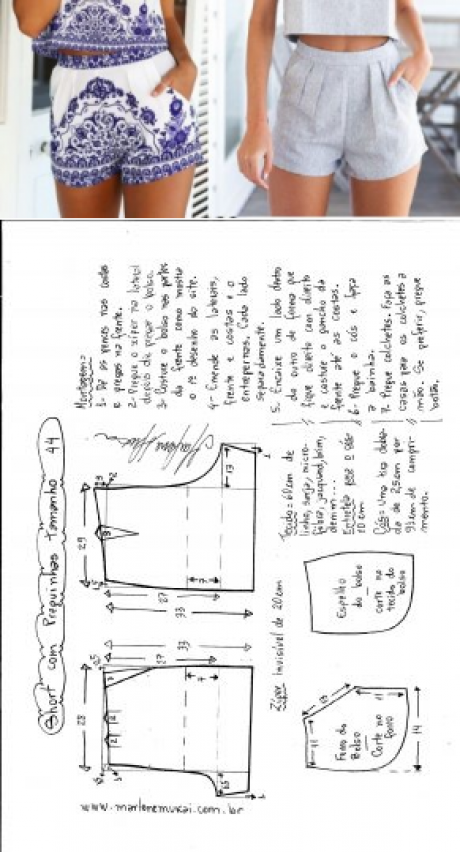 Short com Preguinhas Tamanho 44
Montagem=
1- Dê as pences nas costas
e pregas na frente.
2- Pregue o ziper na lateral
depois de pregar o bolso.
3- Costure o bolso nas partes
da frente como mostra
o desenho do site.
4- Emende as laterais,
frente e costas e o
entrepernas. Cada lado
separadamente.
5. Encaixe um lado dentro
do outro de forma que
fique direito com direito
e costure o gancho da
frente até as costas.
6- Pregue o cós e faça
a bainha.
7. Pregue colchetes. Faça as
casas para os colchetes a
mão. Se preferir, pregue
botão.
29
2
13
7
27
33
28
0,5
33
27
7
2
2
Tecido = 60cm de
linho, sarja, micro-
fibra, jacquard, brim,
denim...
Entretela
10 cm
Cós = Uma tira dobra-
da de 2,5cm por
93cm de compri-
mento.
Zíper Invisível de 20cm
Espelho
do bolso
corte no
tecido do
bolso
Fundo do
Bolso
Corte no
forro
11
14
www.marlenemukai.com.br